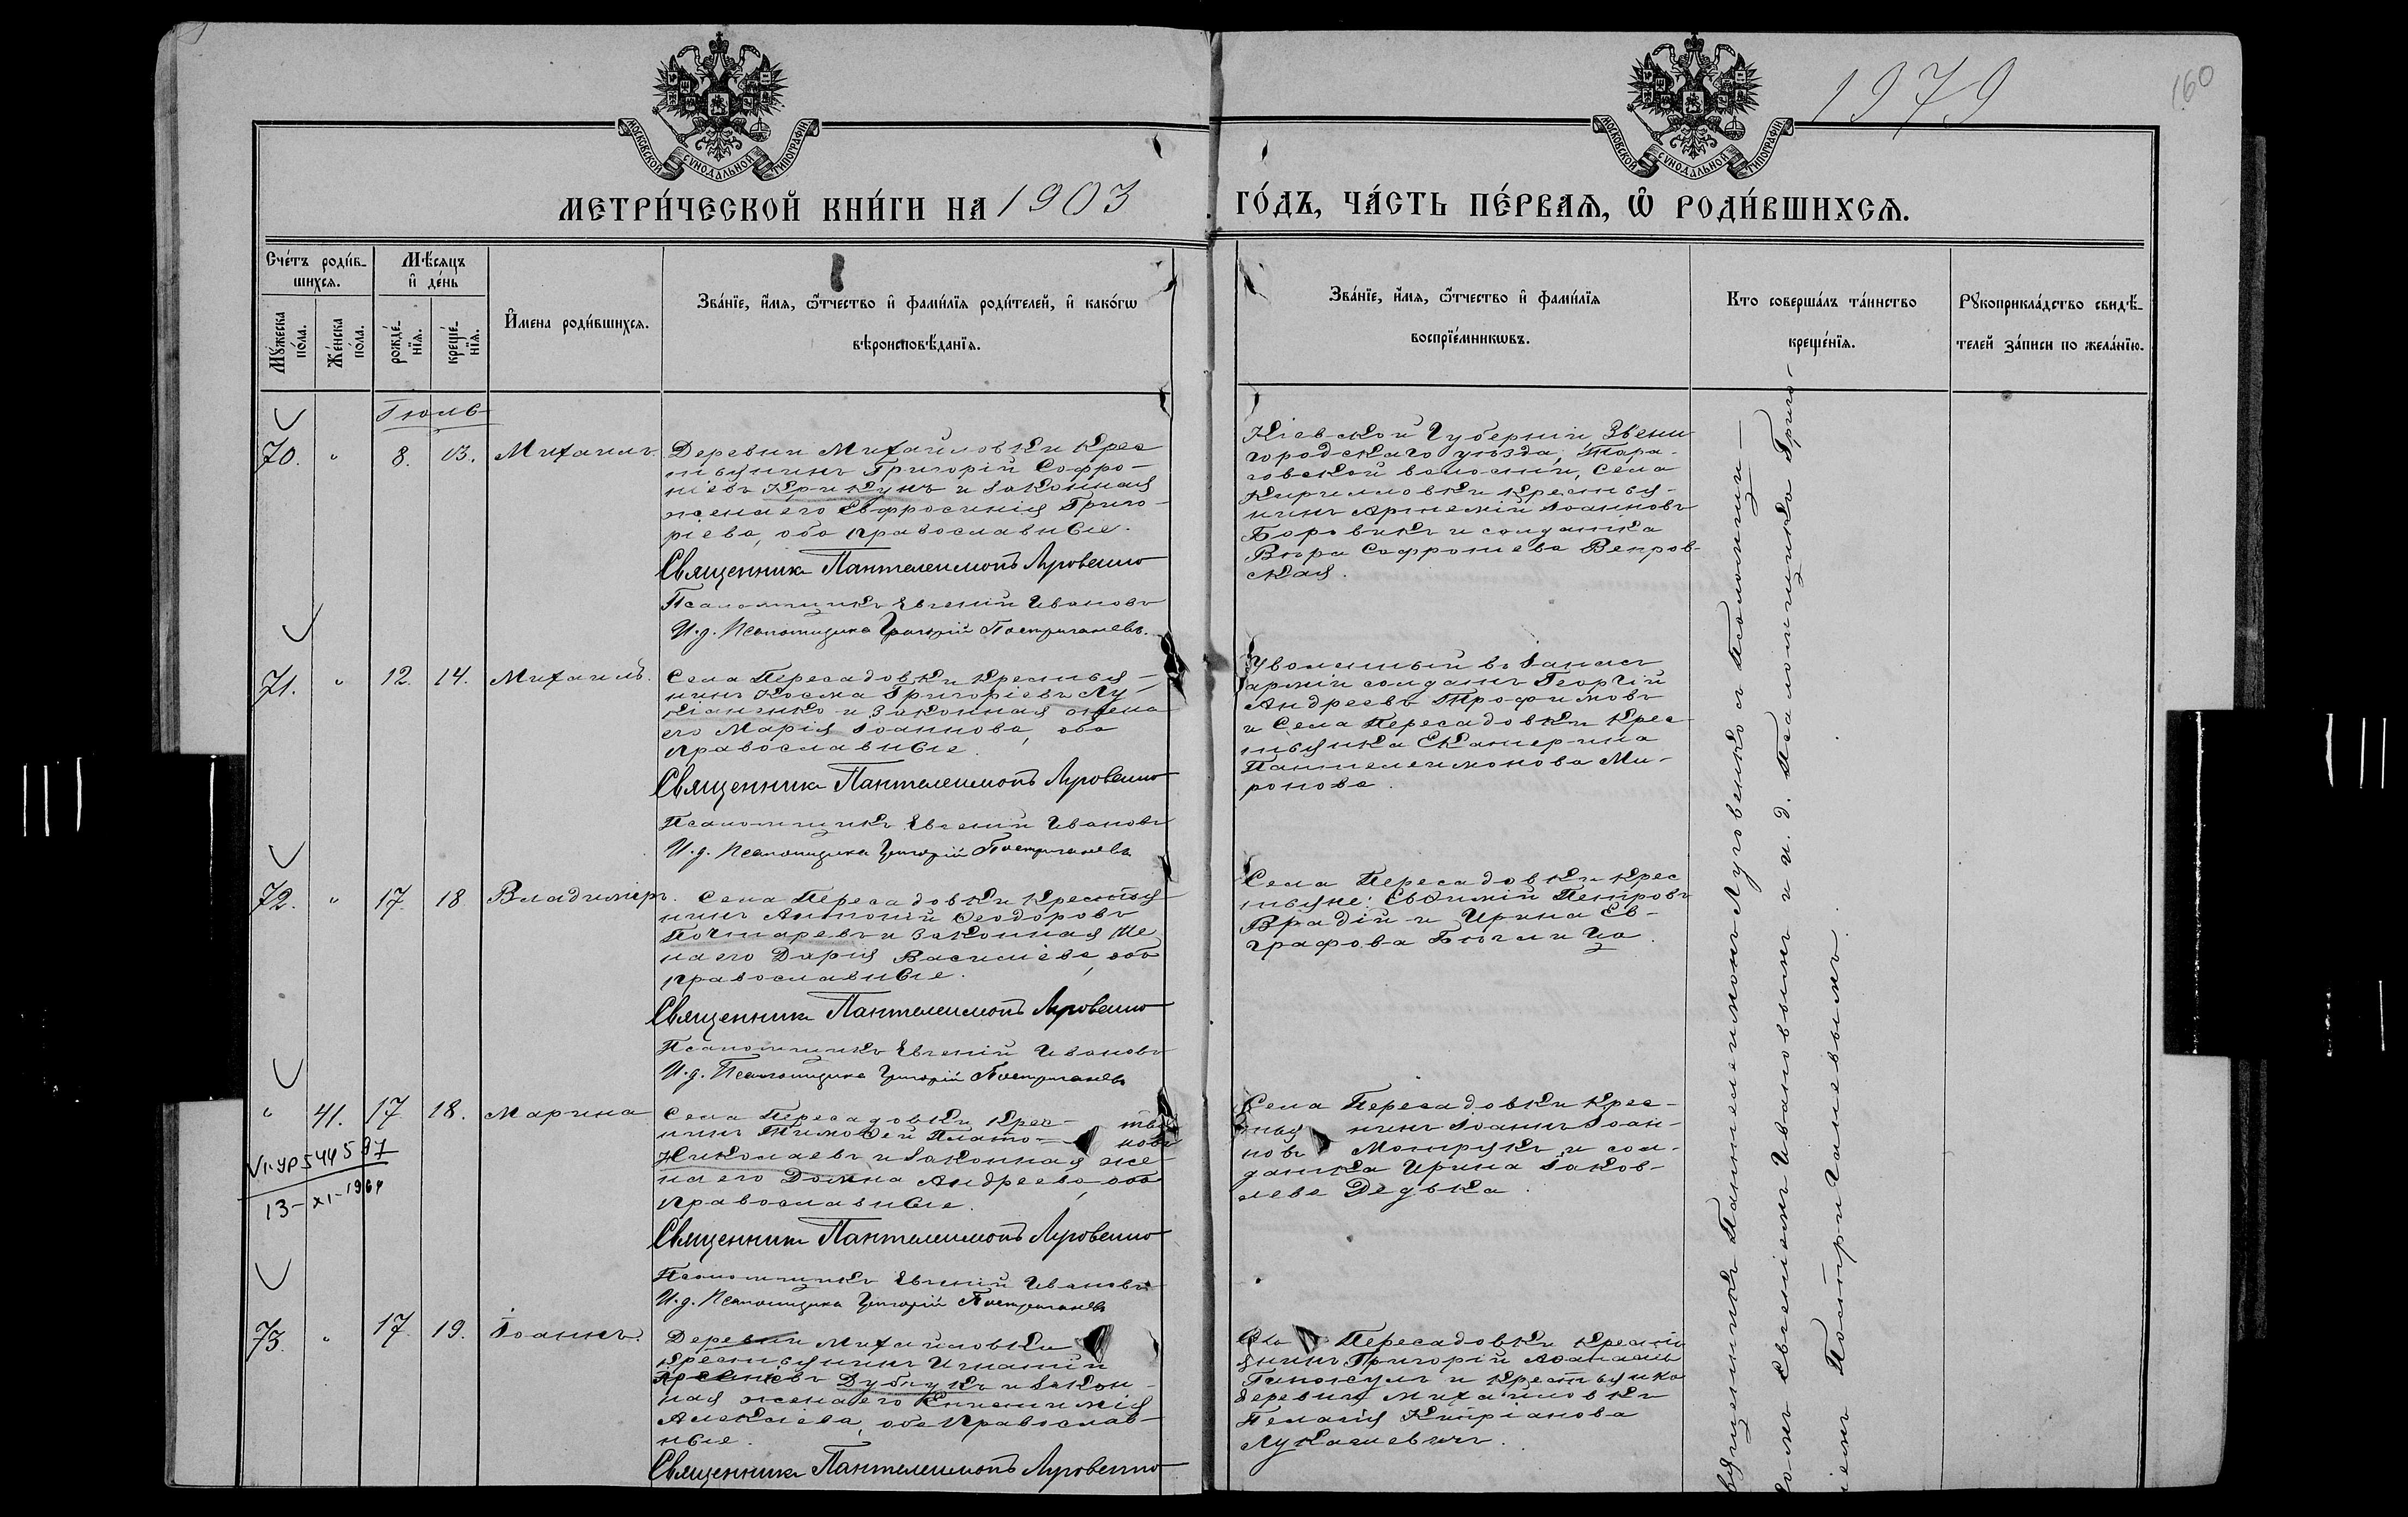 1979
160
МОСКОВСКОЙ СѴНОДАЛЬНОЙ ТИПОГРАФІИ
МОСКОВСКОЙ СѴНОДАЛЬНОЙ ТИПОГРАФІИ
МЕТРИ́ЧЕСКОЙ КНИ́ГИ НА 1903
ГО́ДЪ, ЧА́СТЬ ПЕ́РВАЯ, Ѡ РОДИ́ВШИХСЯ.
Сче́тъ роди́в-
шихся.
Му́жеска
по́ла.
Же́нска
по́ла.
Мѣ́сяцъ
и҆ де́нь
рожде́-
нїя.
креще́-
нїя.
И҆мена роди́вшихся.
Зва́нїе, и҆́мя, ѻ҆́тчество и҆ фами́лїя роди́телей, и҆ како́гѡ
вѣроисповѣ́данїя.
Зва́нїе, и҆́мя, ѻ҆́тчество и҆ фами́лїя
воспрїе́мникѡвъ.
Кто соверша́лъ та́инство
креще́нїя.
Рꙋкоприкла́дство свидѣ́-
телей за́писи по жела́нїю.
Іюль
70. " 8. 13. Михаилъ
Деревни Михайловки крес
тьянинъ Григорій Софро-
ніевъ Крикунъ и законная
жена его Евфросинія Григо-
ріева, оба православные.
Священникъ Пантелеимонъ Луговенко
Псаломщикъ Евгеній Ивановъ
И.д. Псаломщика Григорій Постригачевъ.
Кіевской Губерніи, Звени
городскаго уѣзда, Тара-
совской волости, села
Кирилловки крестья-
нинъ Артемій Іоанновъ
Боровикъ и солдатка
Вѣра Софроніева Вепров-
ская.
71. " 12. 14. Михаилъ.
Села Пересадовки крестья-
нинъ Косма Григоріевъ Лу-
кіаненко и законная жена
его Марія Іоаннова, оба
православные.
Священникъ Пантелеимонъ Луговенко
Псаломщикъ Евгеній Ивановъ
И.д. Псаломщика Григорій Постригачевъ
Уволенный въ запасъ
арміи солдатъ Георгій
Андреевъ Трофимовъ
и Села Пересадовки крес-
тьянка Екатерина
Пантелеимонова Ми-
ронова.
72. " 17. 18. Владиміръ.
Села Пересадовки крестья
нинъ Антоній Ѳеодоровъ
Почтаревъ и законная же
на его Дарія Василіева, оба
православные.
Священникъ Пантелеимонъ Луговенко
Псаломщикъ Евгеній Ивановъ
И.д. Псаломщика Григорій Постригачевъ
Села Пересадовки крес
тьяне: Евѳимій Петровъ
Врадій и Ирина Ев-
графова
" 41. 17. 18. Марина
13-XI-1964
Села Пересадовки крес- тья
нинъ Тимоѳей Плато- новъ
Николаевъ и законная же-
на его Домна Андреева, оба
православные.
Священникъ Пантелеимонъ Луговенко
Псаломщикъ Евгеній Ивановъ
И.д. Псаломщика Григорій Постригачевъ
Села Пересадовки крес-
тья нинъ Іоаннъ Іоан-
новъ и сол-
датка Ирина Іаков-
лева Дедька.
73. " 17. 19. Іоаннъ.
Деревни Михайловки
крестьянинъ Игнатій
Дубчукъ и закон-
ная жена его
Алексіева, оба православ-
ные.
Священникъ Пантелеимонъ Луговенко
Села Пересадовки крестья
янинъ Григорій Аѳанасіевъ
и крестьянка
деревни Михайловки
Пелагія Кипріанова
Лукашевичъ.
Священникъ Пантелеимонъ Луговенко съ псаломщи-
комъ Евгеніемъ Ивановымъ и и. д. Псаломщика Григо-
ріемъ Постригачевымъ.